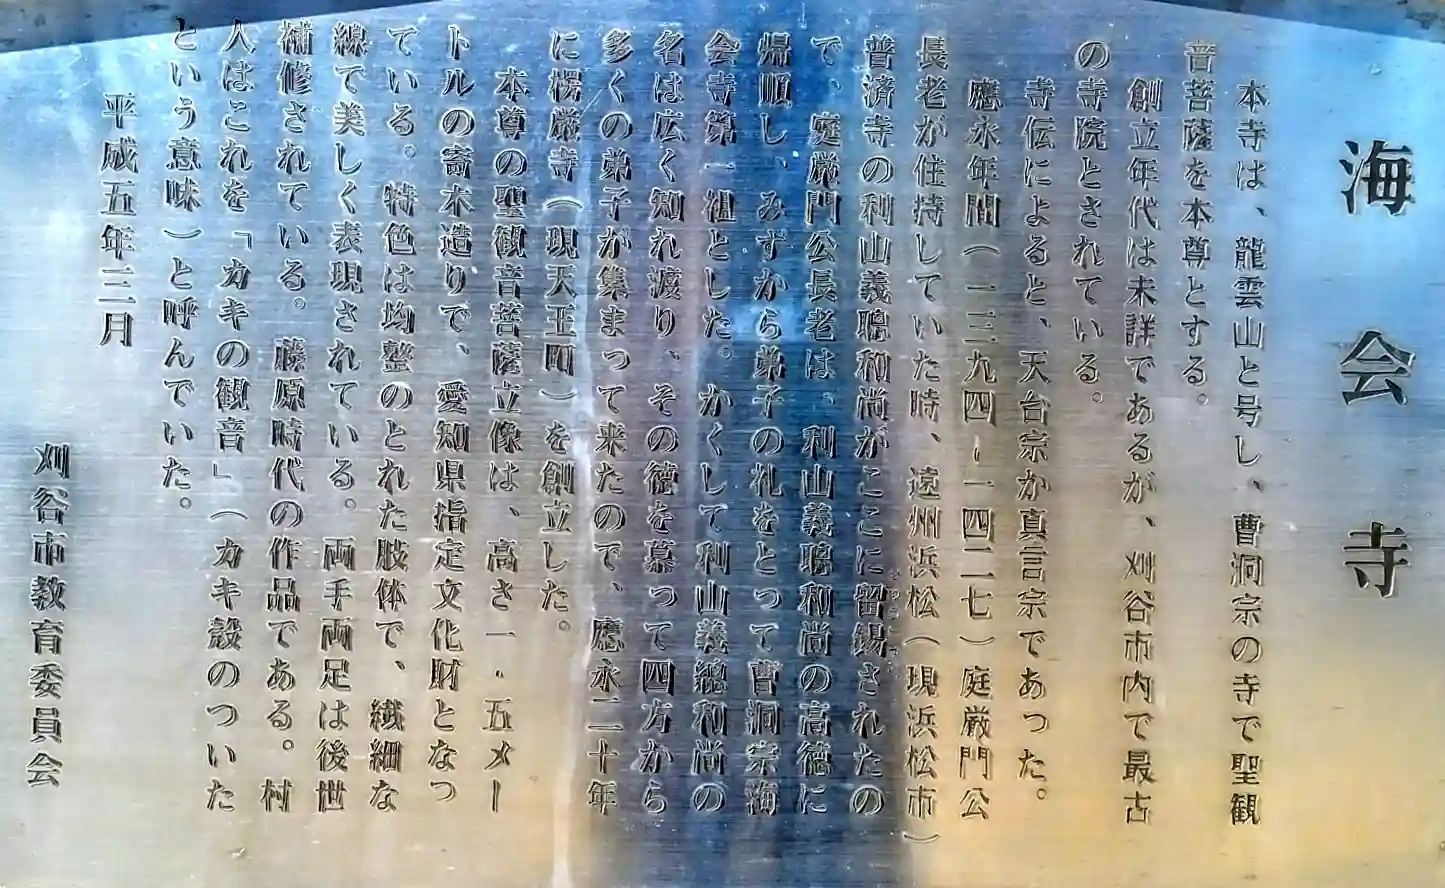 海会寺
本寺は、龍雲山と号し、曹洞宗の寺で聖観
音菩薩を本尊とする。
創立年代は未詳であるが、刈谷市内で最古
の寺院とされている。
寺伝によると、天台宗か真言宗であった。
應永年間（一三九四～一四二七）庭厳門公
長老が住持していた時、遠州浜松（現浜松市）
普済寺の利山義聡和尚がここに留錫されたの
で、庭厳門公長老は、利山義聡和尚の高徳に
帰順し、みずから弟子の礼をとって曹洞宗海
会寺第一祖とした。かくして利山義総和尚の
名は広く知れ渡り、その徳を慕って四方から
多くの弟子が集まって来たので、應永二十年
に楞厳寺（現天王町）を創立した。
本尊の聖観音菩薩立像は、高さ一・五メー
トルの寄木造りで、愛知県指定文化財となっ
ている。特色は均整のとれた肢体で、繊細な
線で美しく表現されている。両手両足は後世
補修されている。藤原時代の作品である。村
人はこれを「カキの観音」（カキ殻のついた
という意味）と呼んでいた。
平成五年三月
刈谷市教育委員会